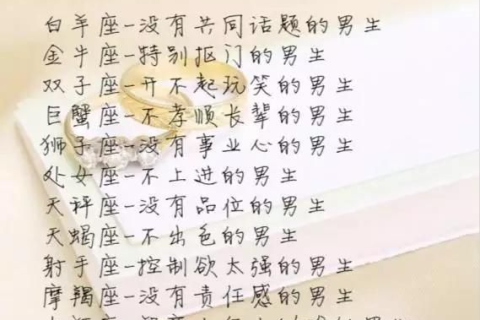 白羊座-没有共同话题的男生
金牛座-特别抠门的男生
双子座-开不起玩笑的男生
巨蟹座-不孝顺长辈的男生
狮子座-没有事业心的男生
处女座-不上进的男生
天秤座-没有品位的男生
天蝎座-不出色的男生
射手座-控制欲太强的男生
摩羯座-没有责任感的男生